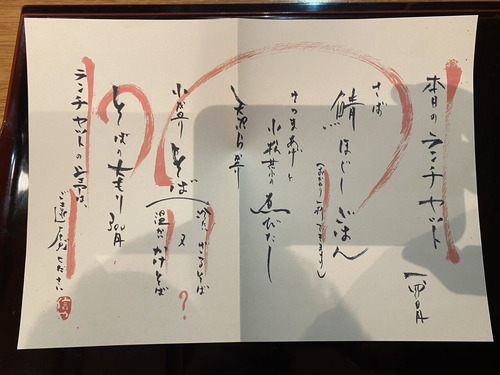 本日のランチセット
さば
鯖ほぐしごはん
(おかわり一杯できます)
さつまあげと
小松菜の煮びたし
小盛り そば
冷たいせいろそば
又
温かいかけそば
?
そばの大もり 300円
ランチセットのシェアは
ご遠慮ください